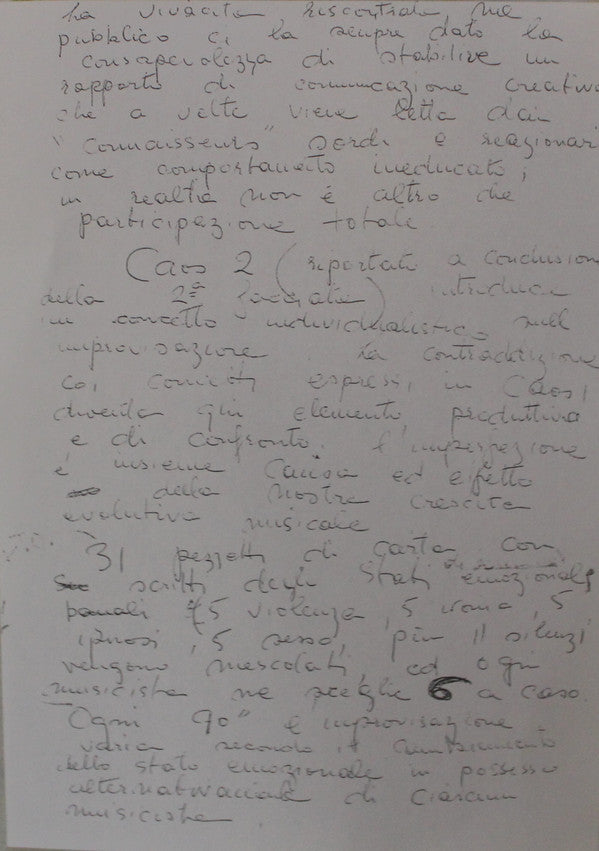 La vivacità riscontrata nel
pubblico ci ha sempre dato la
consapevolezza di stabilire un
rapporto di comunicazione creativa
che a volte viene letta dai
"connaisseurs" sordi e reazionari
come comportamento ineducato,
in realtà non è altro che
participazione totale
Caos 2 (riportato a conclusione
della 2ª facciata) introduce
un concetto individualistico nell'
improvisazione. La contraddizione
coi concetti espressi in Caos 1
diventa qui elemento produttivo
e di confronto. L'imperfezione
è insieme causa ed effetto
della nostra crescita
evolutiva musicale
31 pezzetti di carta con
scritti degli stati emozionali
(5 violenza, 5 ironia, 5
ipnosi, 5 sesso, più 11 silenzi
vengono mescolati, ed ogni
musicista ne sceglie 6 a caso.
Ogni 90" e improvisazione
varia secondo il cambiamento
dello stato emozionale in possesso
alternativamente di ciascun
musicista